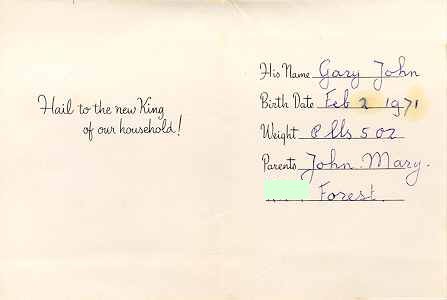 Hail to the new King
of our household!
His Name Gary John
Birth Date Feb 2 1971
Weight 8 lbs 5 oz
Parents John. Mary.
Forest.